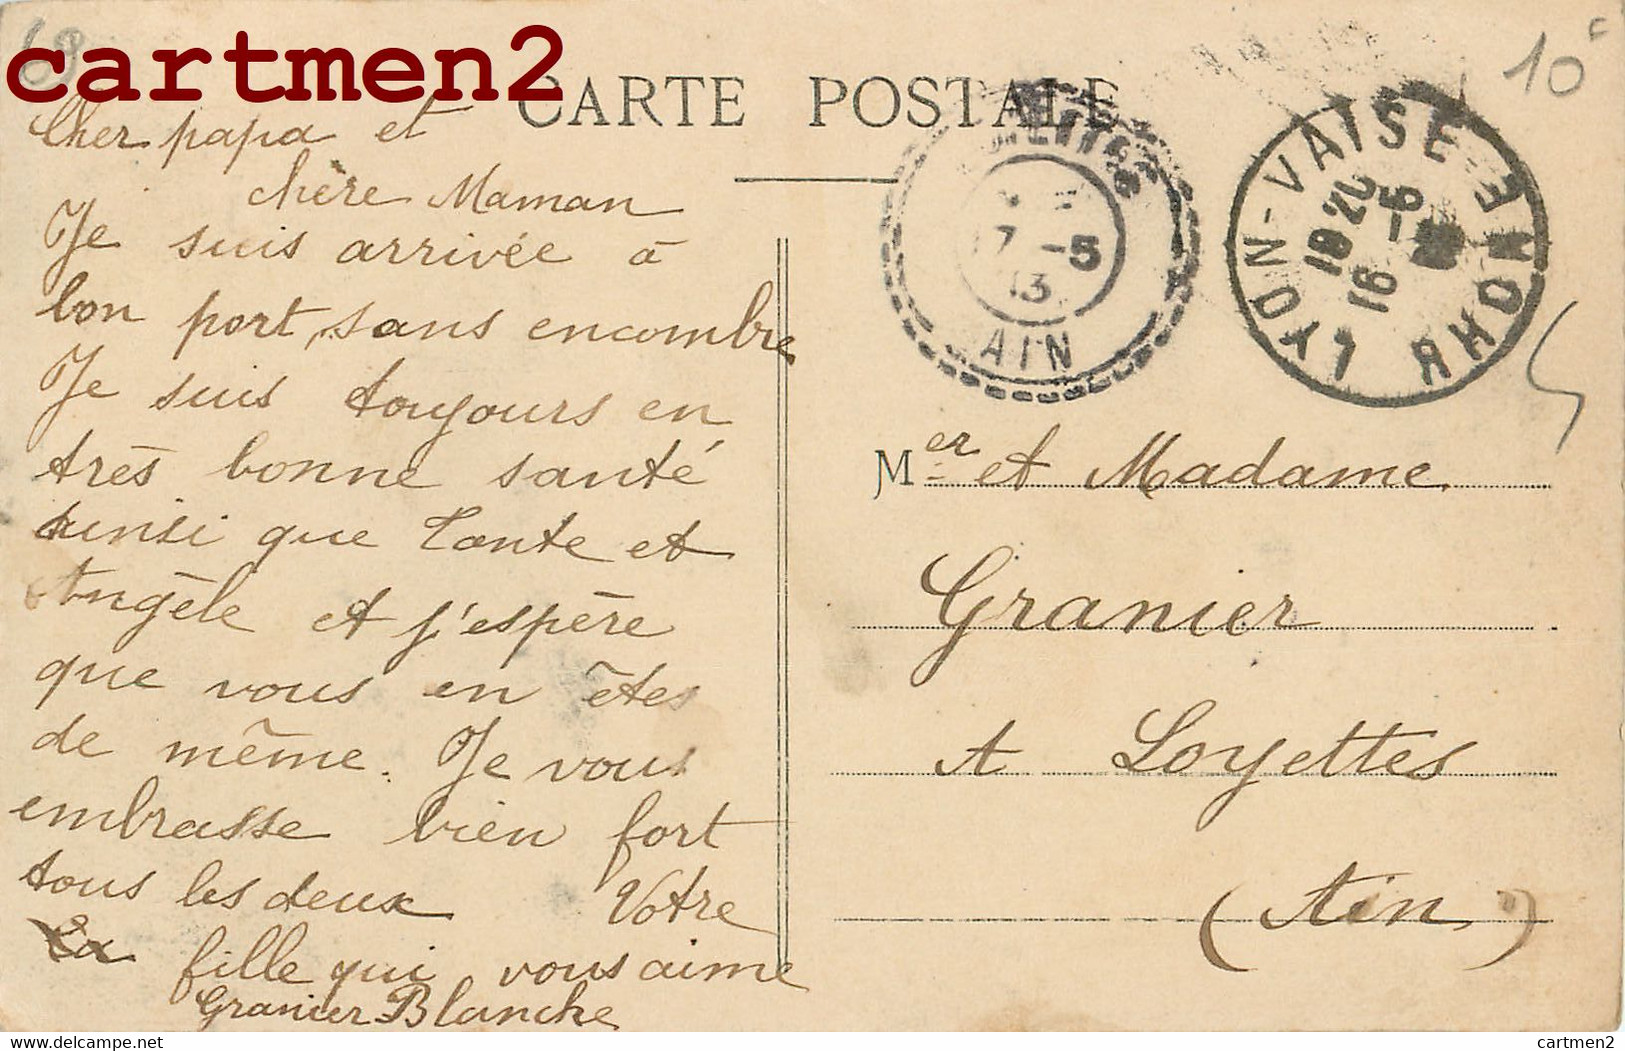 cartmen2
69
10c
CARTE POSTALE
Cher papa et
chère Maman
Je suis arrivée à
bon port, sans encombre
Je suis toujours en
très bonne santé
ainsi que Tante et
Angèle et j'espère
que vous en êtes
de même. Je vous
embrasse bien fort
tous les deux Votre
fille qui vous aime
Granier Blanche
7 -5
13
AIN
LYON-VAISE RHONE
1920
16
Mer et Madame
Granier
A Loyettes
(Ain)
delcampe.net
cartmen2